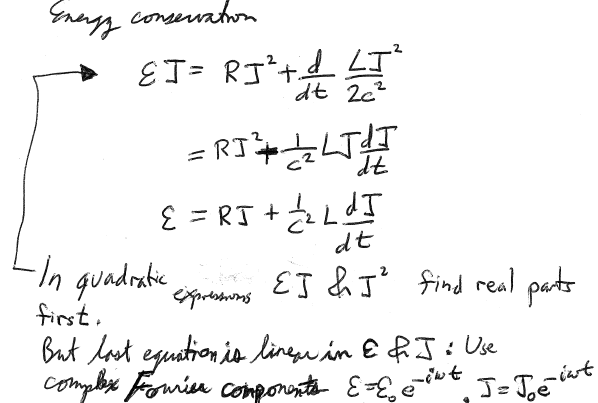 Energy conservation
ℰJ = RJ² + d/dt LJ²/2c²
= RJ² + 1/c² LJ dJ/dt
ℰ = RJ + 1/c² L dJ/dt
In quadratic expressions ℰJ & J² find real parts
first.
But last equation is linear in ℰ & J : Use
complex Fourier components ℰ=ℰ₀e^{-iωt}, J=J₀e^{-iωt}